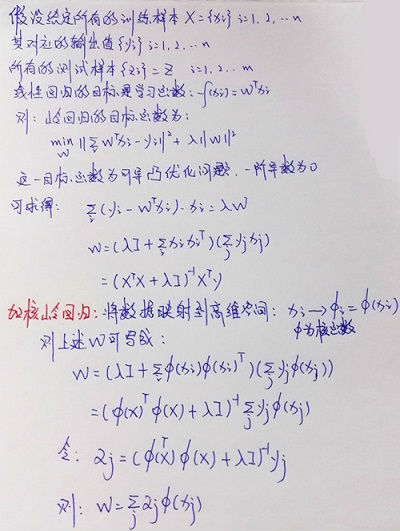 假设给定所有的训练样本 X={xi} i=1,2,…n
其对应的输出值{yi} i=1,2,…n
所有的测试样本{zi}=Z i=1,2,…m
线性回归的目标是学习函数:f(xi)=wᵀxi
则:岭回归的目标函数为:
min_w ‖Σ_i wᵀxi-yi‖²+λ‖w‖²
这一目标函数为可导凸优化问题,一阶导数为0
可求得: Σ_i(yi-wᵀxi)·xi=λw
w=(λI+Σ_i xixiᵀ)(Σ_j yjxj)
=(XᵀX+λI)⁻¹Xᵀy
加核岭回归:将数据映射到高维空间:xi→ϕi=ϕ(xi)
ϕ为核函数
则上述w可写成:
w=(λI+Σ_i ϕ(xi)ϕ(xi)ᵀ)(Σ_j yjϕ(xj))
=(ϕ(X)ᵀϕ(X)+λI)⁻¹Σ_j yjϕ(xj)
令:αj=(ϕ(X)ᵀϕ(X)+λI)⁻¹yj
则:w=Σ_j αjϕ(xj)